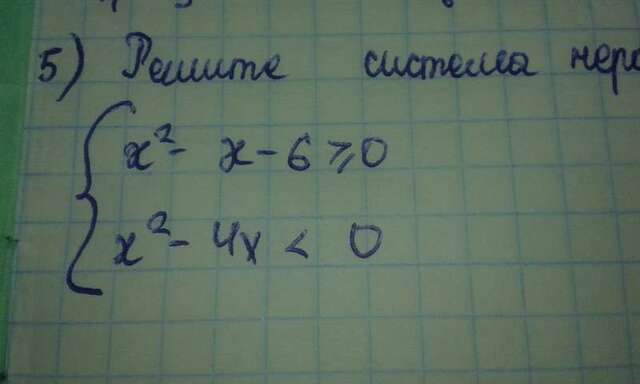 5) Решите система нера
{ x² - x - 6 ⩾ 0
x² - 4x < 0